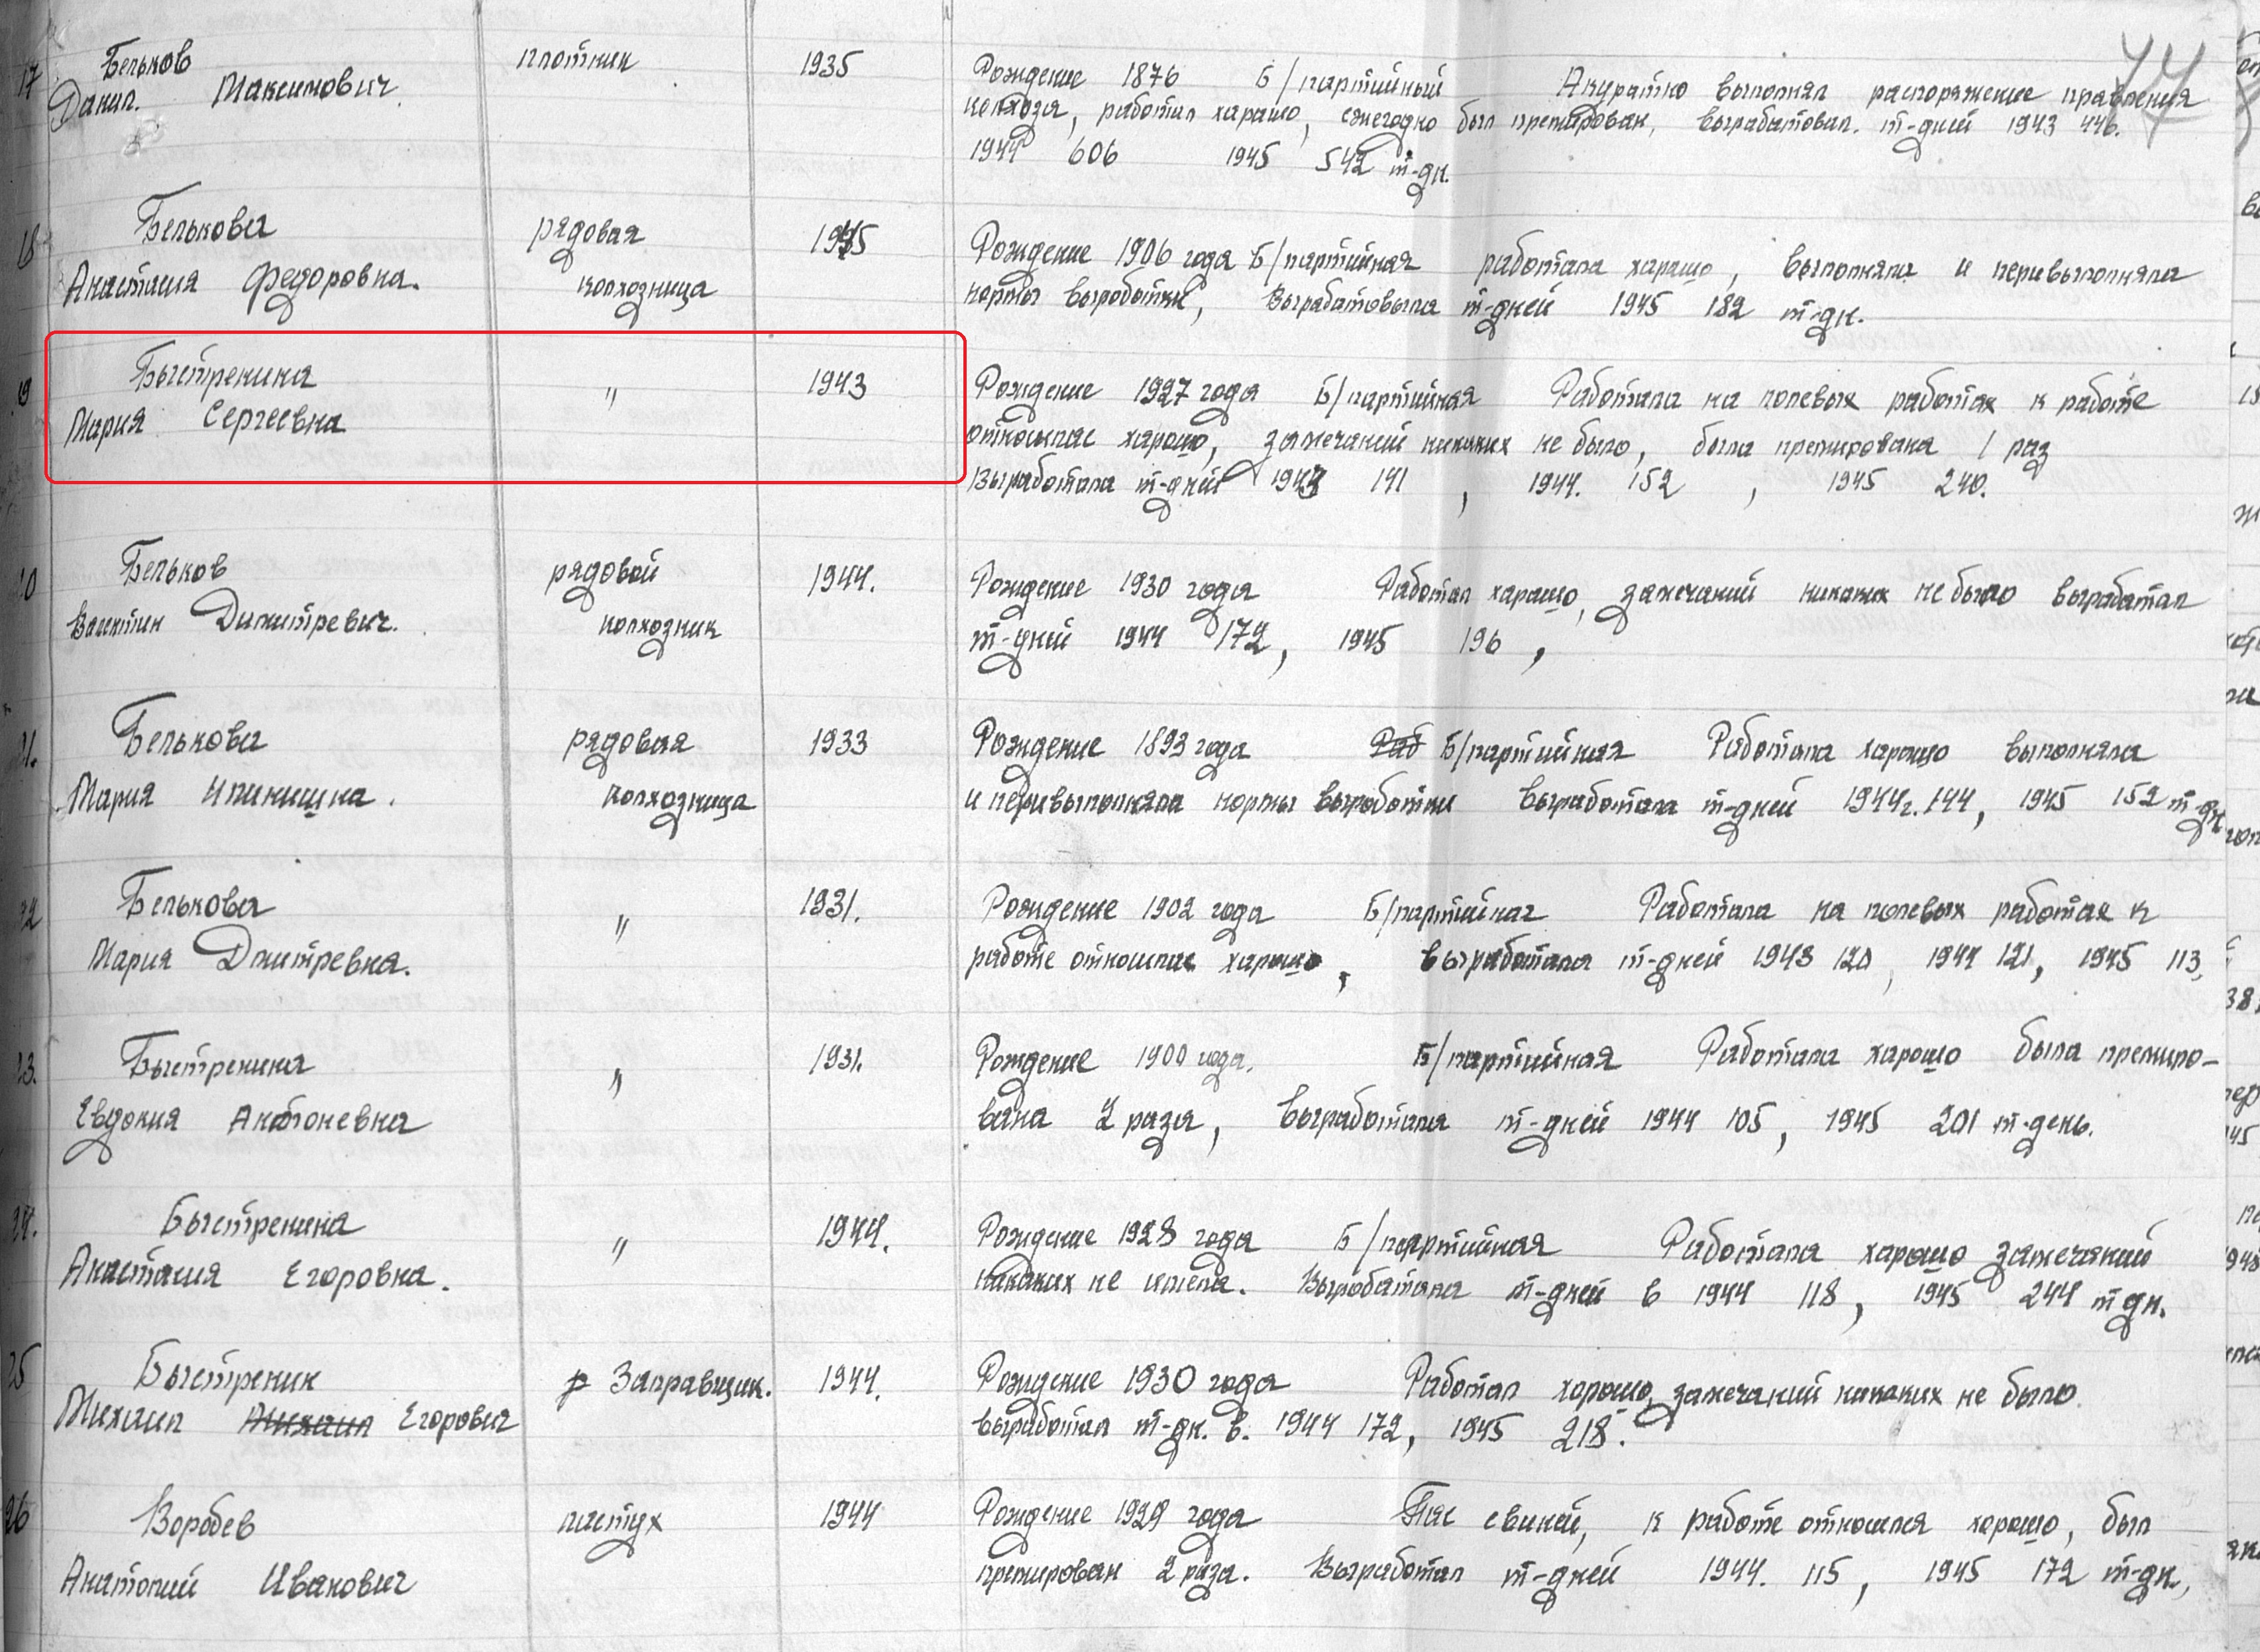 17 Бельков плотник 1935 Рождение 1876 Б/партийный Акуратно выполнял распоряжение правления
Данил. Максимович. колхоза, работал харашо, ежегодно был премирован, вырабатовал. т-дней 1943 446.
1944 606 1945 542 т-дн.
18 Белькова рядовая 1945 Рождение 1906 года Б/партийная работала харашо, выполняла и перивыполняла
Анастасия Федоровна. колхозница нормы выработки, Вырабатовыла т-дней 1945 182 т-дн.
19 Быстренина " 1943 Рождение 1927 года Б/партийная Работала на полевых работах к работе
Мария Сергеевна относилас харашо, замечаний никаких не было, была премирована 1 раз
Выработала т-дней 1943 141, 1944. 152, 1945 240.
Бельков рядовой 1944. Рождение 1930 года Работал харашо, замечаний никаких не было выработал
Валентин Димитревич. колхозник т-дней 1944 172, 1945 196,
Белькова рядовая 1933 Рождение 1893 года Раб Б/партийная Работала харошо выполняла
Мария колхозница и перивыполняла нормы выработки выработала т-дней 1944г. 144, 1945 152 т-дн
22 Белькова " 1931. Рождение 1902 года Б/партийная Работала на полевых работах к
Мария Дмитревна. работе относилас харашо, выработала т-дней 1943 120, 1944 121, 1945 113,
23. Быстренина " 1931. Рождение 1900 года. Б/партийная Работала харошо была премиро-
Евдокия Антоневна вана 2 раза, Выработала т-дней 1944 105, 1945 201 т-день.
24. Быстренина " 1944. Рождение 1928 года Б/партийная Работала харошо замечаний
Анастасия Егоровна. никаких не имела. Выробатала т-дней в 1944 118, 1945 244 т дн.
25 Быстренин р Заправщик. 1944. Рождение 1930 года Работал хорошо, замечаний никаких не было.
Михаил Михаил Егорович выработал т-дн. в. 1944 172, 1945 218.
26 Воробев пастух 1944 Рождение 1929 года Пас свиней, к работе относился хорошо, был
Анатолий Иванович премирован 2 раза. Выработал т-дней 1944. 115, 1945 172 т-дн.,